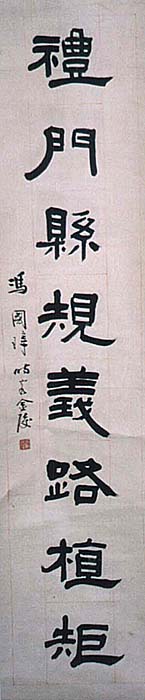 禮門縣規義路植矩
馮國璋時客金陵